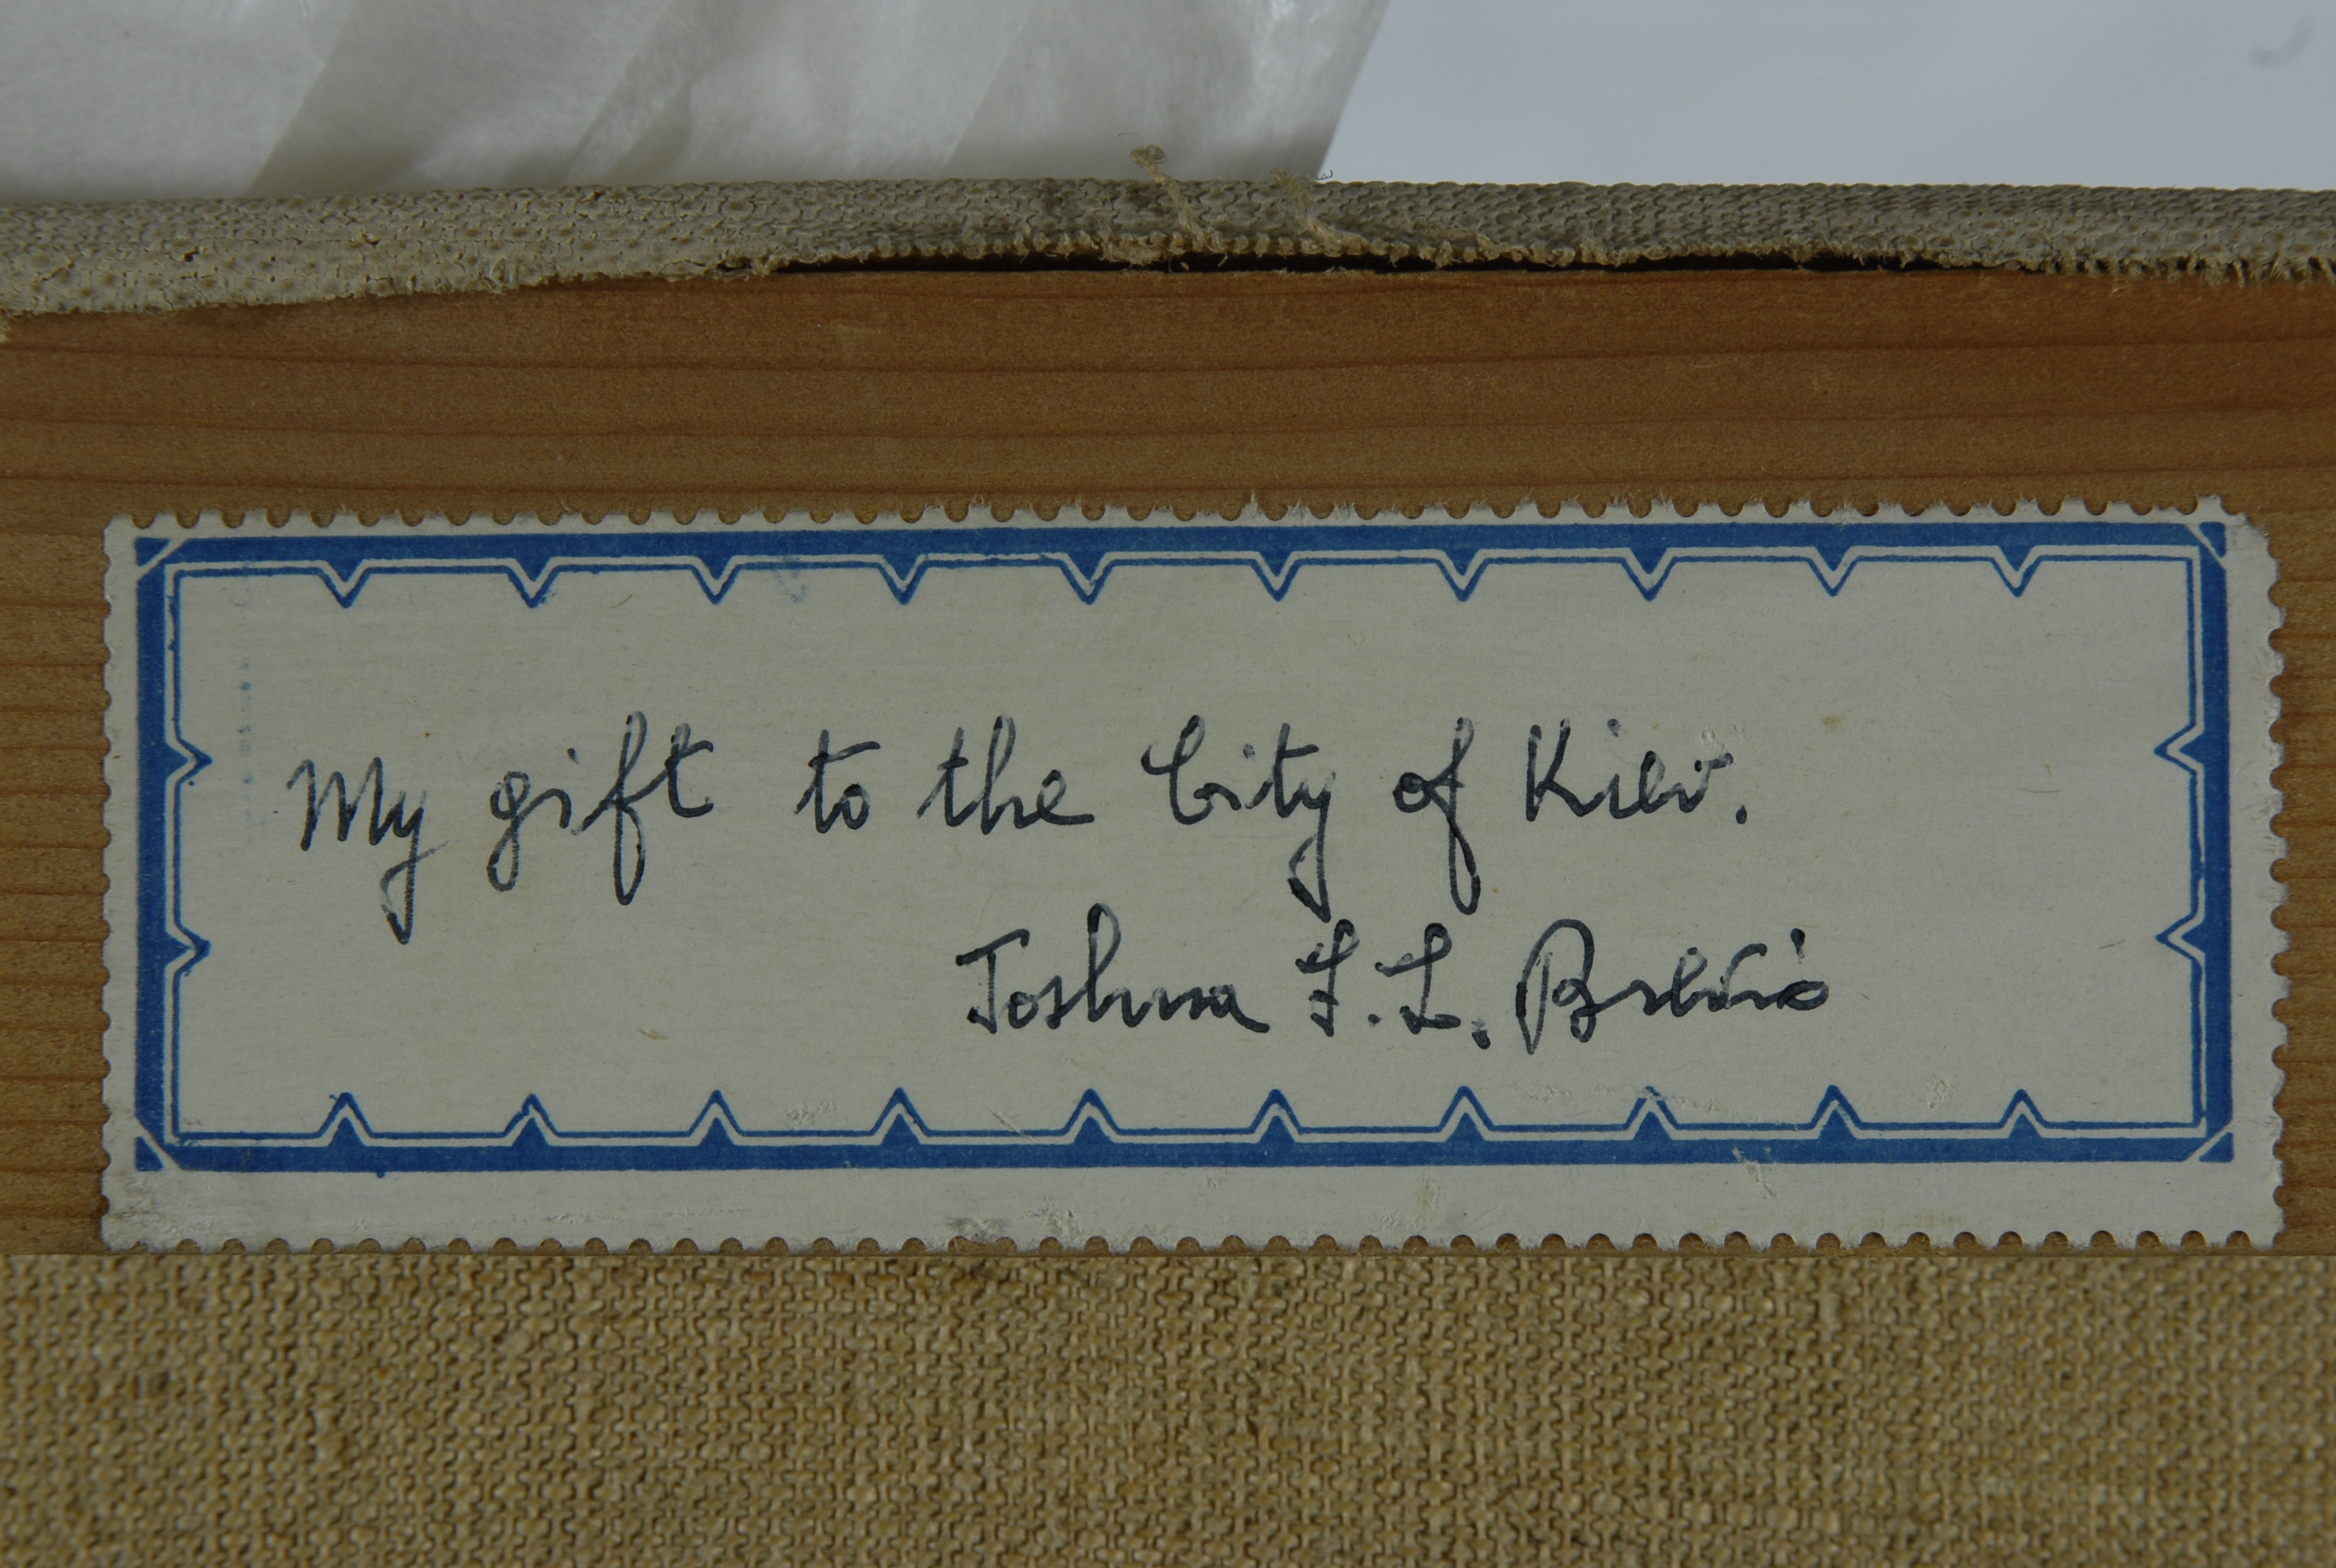 My gift to the City of Kiev.
Joshua F. L.